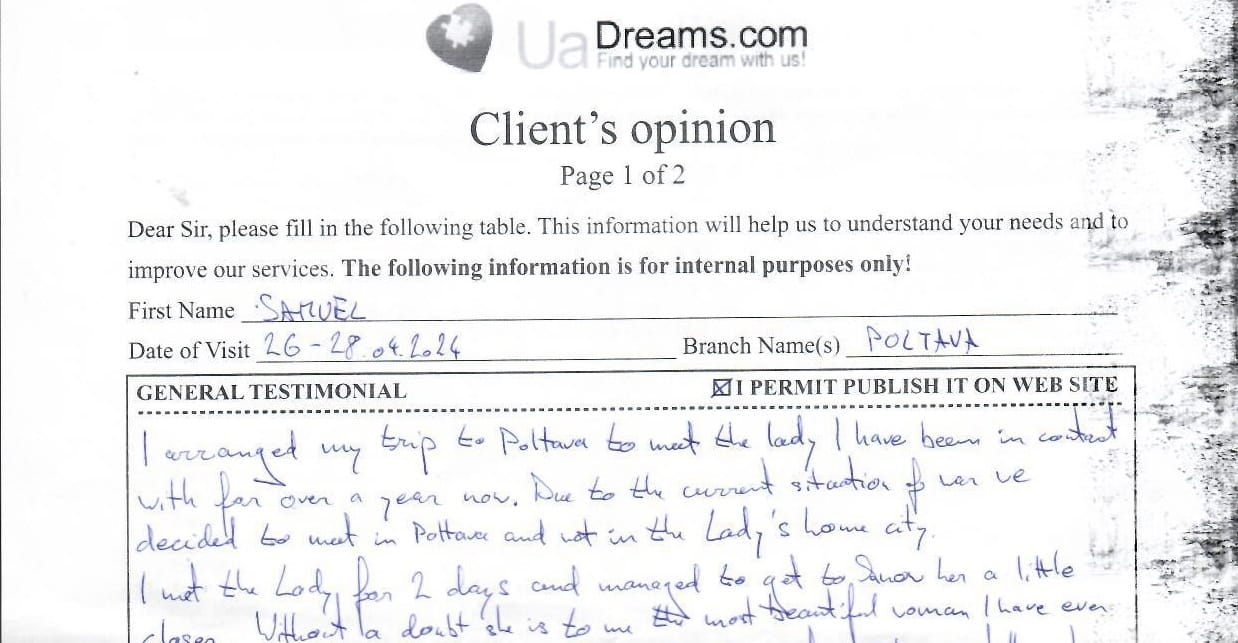 Ua Dreams.com
Find your dream with us!
Client's opinion
Page 1 of 2
Dear Sir, please fill in the following table. This information will help us to understand your needs and to
improve our services. The following information is for internal purposes only!
First Name SAMUEL
Date of Visit 26-28.04.2024 Branch Name(s) POLTAVA
GENERAL TESTIMONIAL ☒ I PERMIT PUBLISH IT ON WEB SITE
I arranged my trip to Poltava to meet the lady I have been in contact
with for over a year now. Due to the current situation of war we
decided to meet in Poltava and not in the Lady's home city.
I met the Lady for 2 days and managed to get to know her a little
closer. Without a doubt she is to me the most beautiful woman I have ever